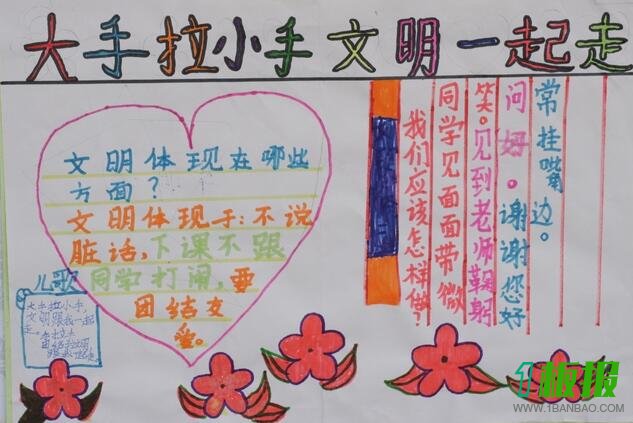 大手拉小手文明一起走
文明体现在哪些
方面?
文明体现于:不说
脏话,下课不跟
同学打闹,要
团结友
爱。
儿歌
大手拉小手,
文明跟我一起
走。
我们应该怎样做?
同学见面面带微
笑。见到老师鞠躬
问好。谢谢您好
常挂嘴边。
1板报
WWW.1BANBAO.COM